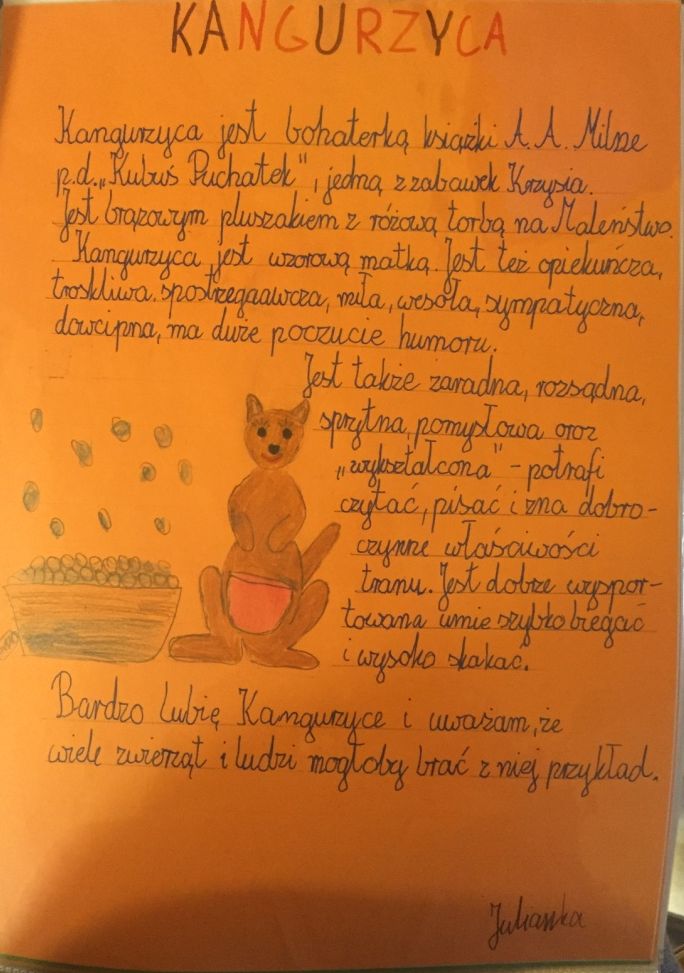 KANGURZYCA
Kangurzyca jest bohaterką książki A. A. Milne
p.d. „Kubuś Puchatek", jedną z zabawek Krzysia.
Jest brązowym pluszakiem z różową torbą na Maleństwo.
Kangurzyca jest wzorową matką. Jest też opiekuńcza,
troskliwa, spostrzegaawcza, miła, wesoła, sympatyczna,
dowcipna, ma duże poczucie humoru.
Jest także zaradna, rozsądna,
sprytna, pomysłowa oroz
„wykształcona" - potrafi
czytać, pisać i zna dobro-
czynne właściwości
tranu. Jest dobrze wyspor-
towana umie szybko biegać
i wysoko skakać.
Bardzo lubię Kangurzyce i uważam, że
wiele zwierząt i ludzi mogłoby brać z niej przykład.
Julianka